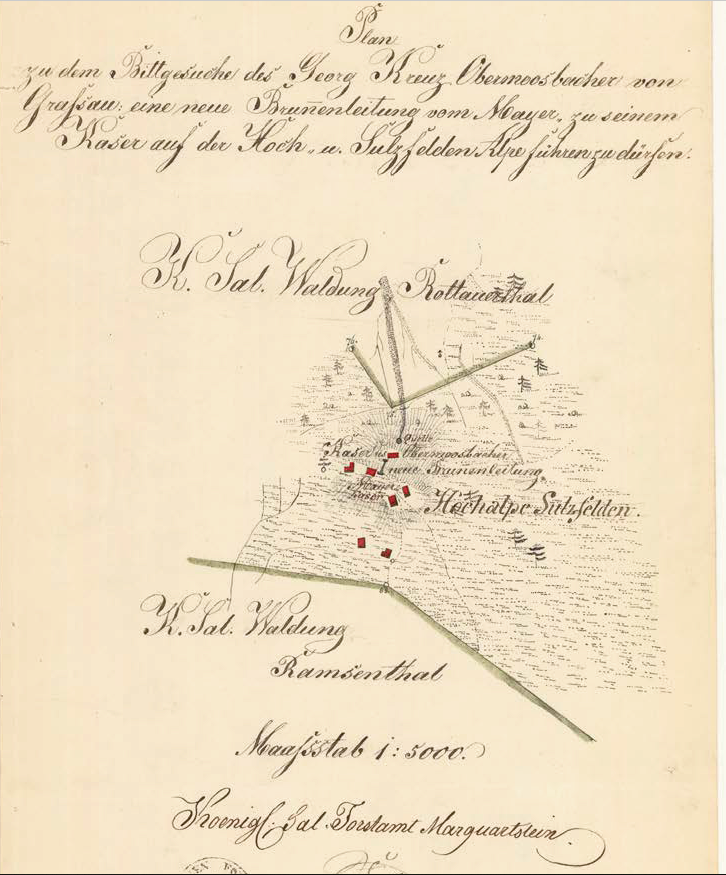 Plan
zu dem Bittgesuche des Georg Kreuz Obermoosbacher von
Graſsau: eine neue Bruñenleitung vom Mayer- zu seinem
Kaser auf der Hoch- u. Sulzfelden Alpe führen zu dürfen.
K. Sal. Waldung Rottauerthal
Quelle
Kaser des Obermoosbacher
neue Brunnenleitung
Mayer
Kaser
Hochalpe Sulzfelden.
K. Sal. Waldung
Ramsenthal
Maaſsstab 1: 5000.
Koenigl: Sal. Forstamt Marquartstein.